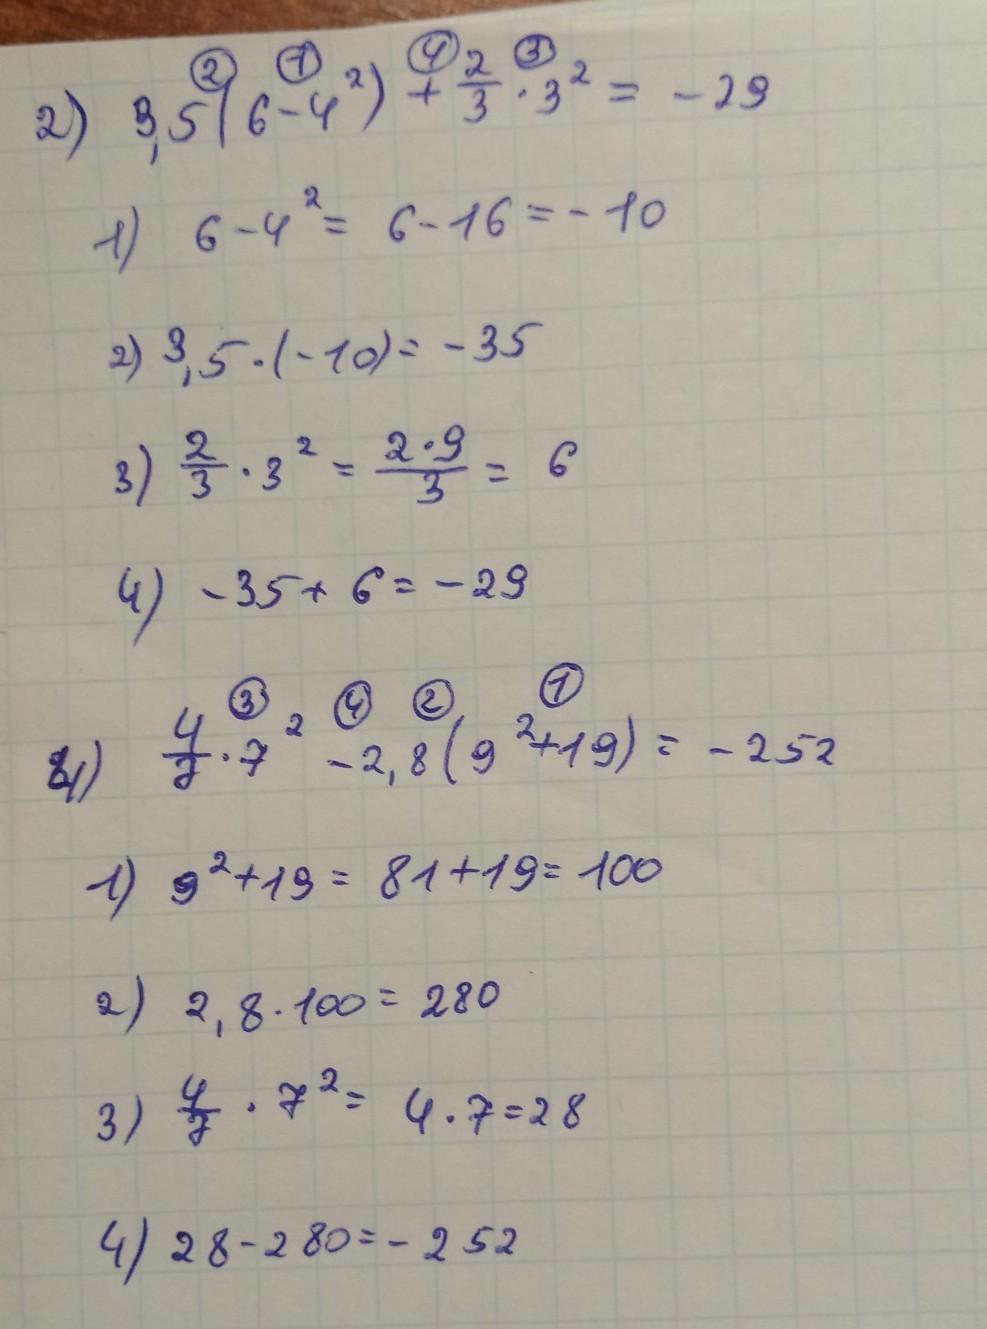 ② ① ④ ③
2) 3,5(6-4²) + 2/3 · 3² = -29
1) 6-4² = 6-16 = -10
2) 3,5·(-10) = -35
3) 2/3 · 3² = 2·9/3 = 6
4) -35+6 = -29
③ ④ ② ①
4) 4/7 · 7² - 2,8(9²+19) = -252
1) 9²+19 = 81+19 = 100
2) 2,8·100 = 280
3) 4/7 · 7² = 4·7 = 28
4) 28-280 = -252